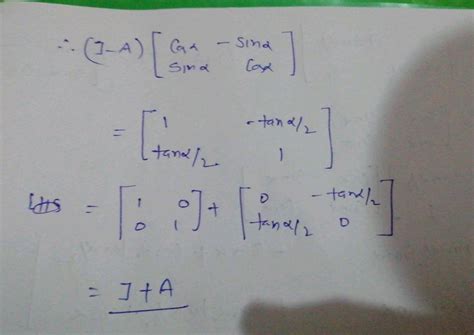 ∴ (I-A) [ Cosα - Sinα
Sinα Cosα ]
= [ 1 -tanα/2
tanα/2 1 ]
= [ 1 0
0 1 ] + [ 0 -tanα/2
tanα/2 0 ]
= I+A